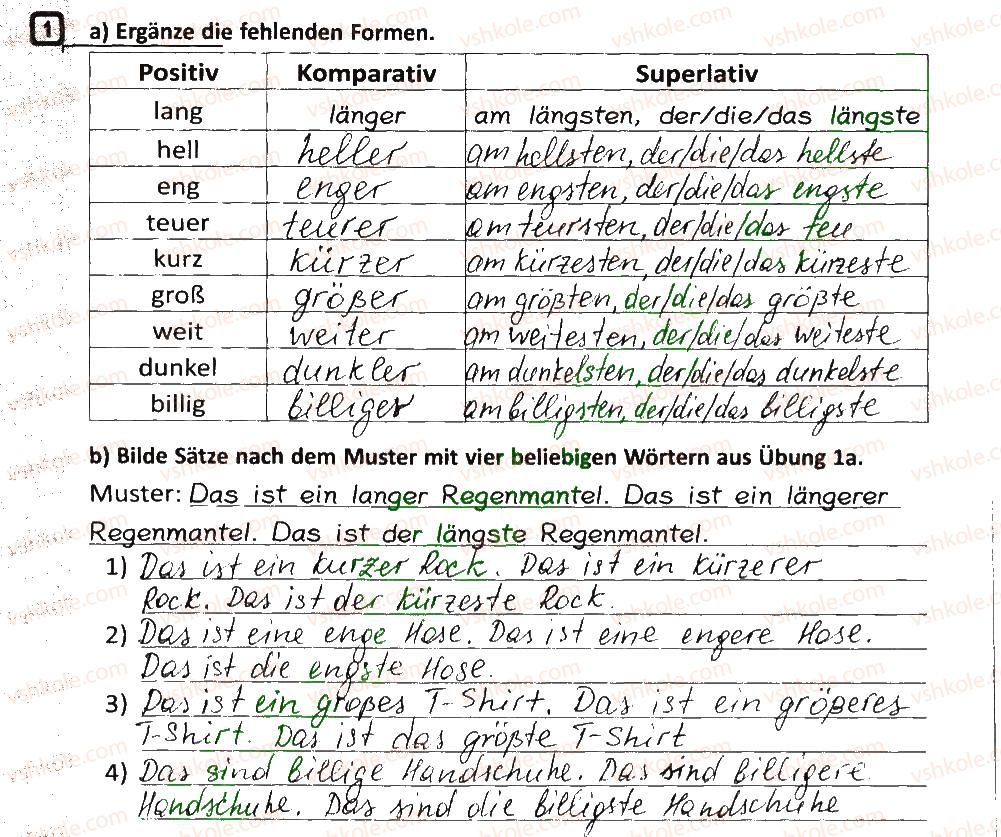 1 a) Ergänze die fehlenden Formen.
Positiv Komparativ Superlativ
lang länger am längsten, der/die/das längste
hell heller am hellsten, der/die/das hellste
eng enger am engsten, der/die/das engste
teuer teurer am teursten, der/die/das teu
kurz kürzer am kürzesten, der/die/das kürzeste
groß größer am größten, der/die/das größte
weit weiter am weitesten, der/die/das weiteste
dunkel dunkler am dunkelsten, der/die/das dunkelste
billig billiger am billigsten, der/die/das billigste
b) Bilde Sätze nach dem Muster mit vier beliebigen Wörtern aus Übung 1a.
Muster: Das ist ein langer Regenmantel. Das ist ein längerer
Regenmantel. Das ist der längste Regenmantel.
1) Das ist ein kurzer Rock. Das ist ein kürzerer
Rock. Das ist der kürzeste Rock.
2) Das ist eine enge Hose. Das ist eine engere Hose.
Das ist die engste Hose.
3) Das ist ein großes T-Shirt. Das ist ein größeres
T-Shirt. Das ist das größte T-Shirt
4) Das sind billige Handschuhe. Das sind billigere
Handschuhe. Das sind die billigste Handschuhe
vshkole.com